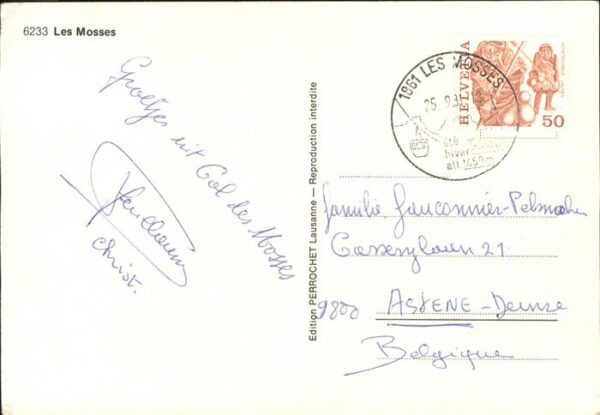 6233 Les Mosses
Groetjes uit Col des Mosses
Christ.
Edition PERROCHET Lausanne — Reproduction interdite
1861 LES MOSSES
25. 9.
été
hiver
alt. 1450m
HELVETIA
50
familie Fauconnier-Pelsmaeker
21
9800 ASTENE-Deinze
Belgique